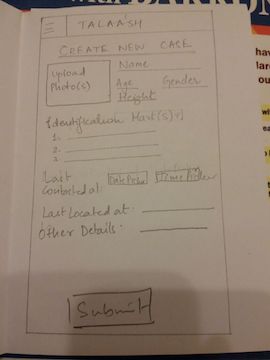 TALAASH
CREATE NEW CASE
Upload
Photo(s)
Name
Age Gender
Height
Identification Mark(s):
1.
2.
3.
Last
Contacted at Date Picker Time Picker
Last Located at.
Other Details.
Submit